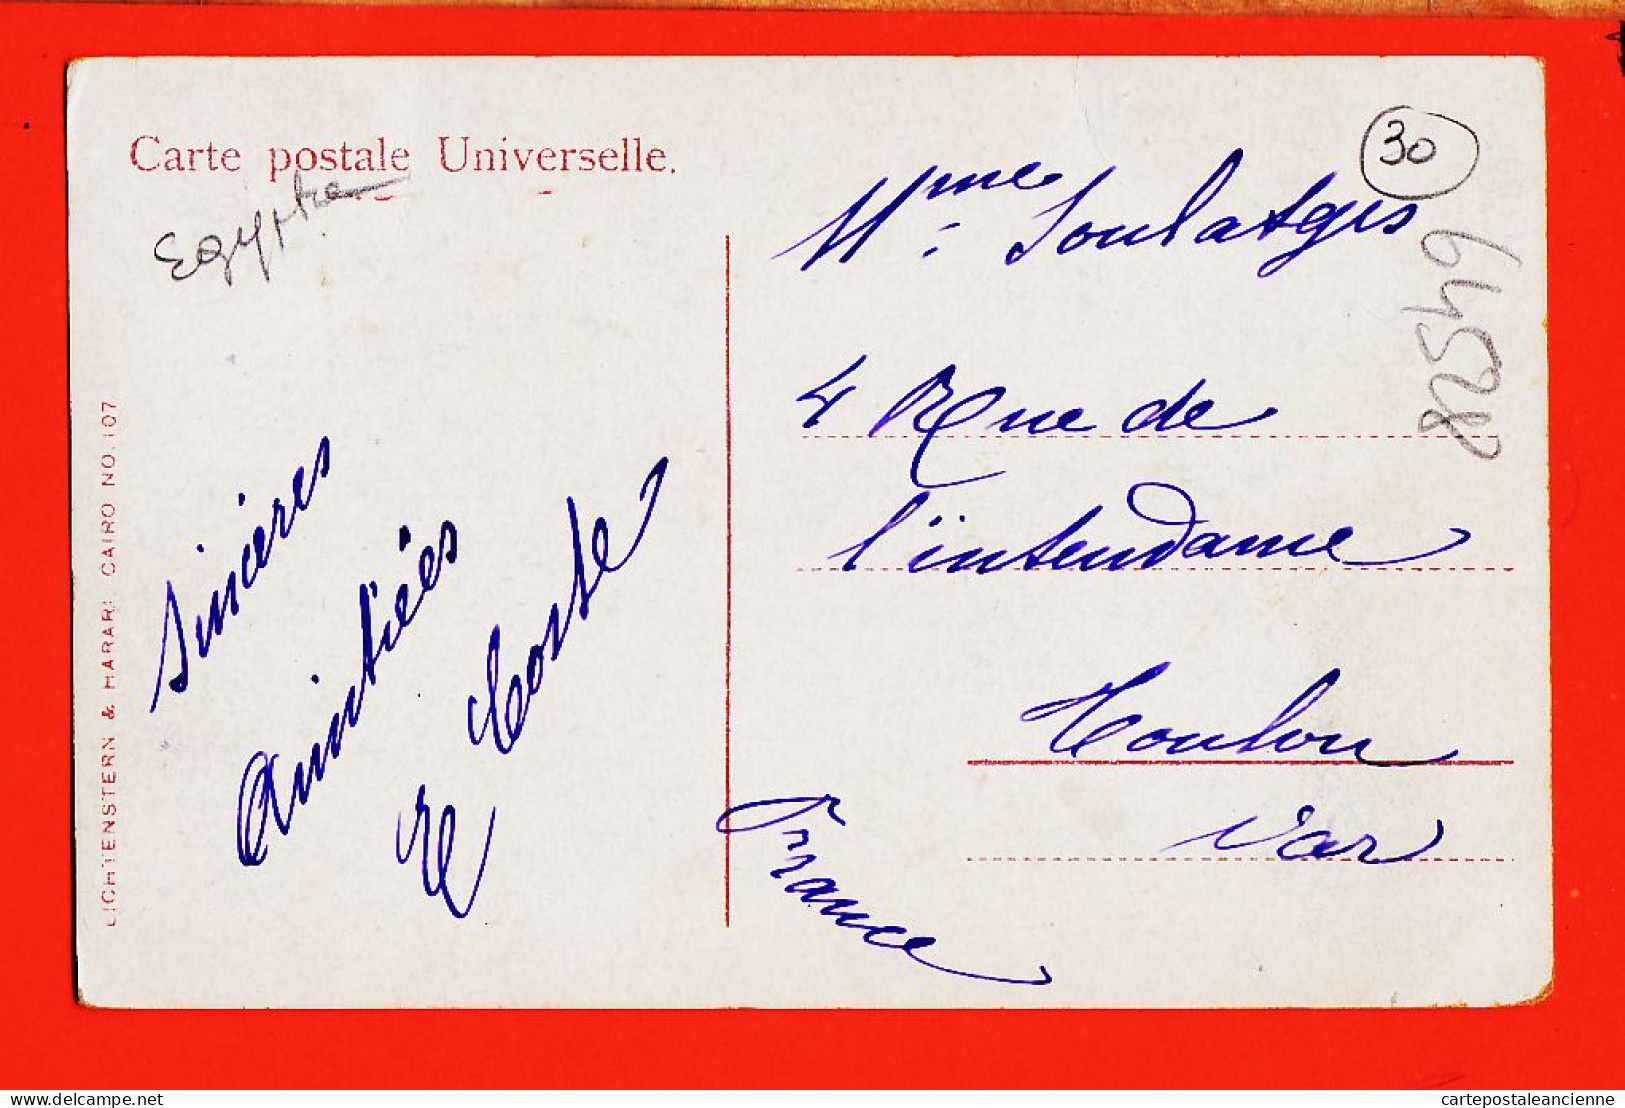 Carte postale Universelle.
Egypte
30
64528
LICHTENSTERN & HARARI, CAIRO NO. 107
Sincères
Amitiés
E Coste
Mme Soulatges
4 Rue de
l'intendance
Toulon
Var
France
delcampe.net
cartepostaleancienne